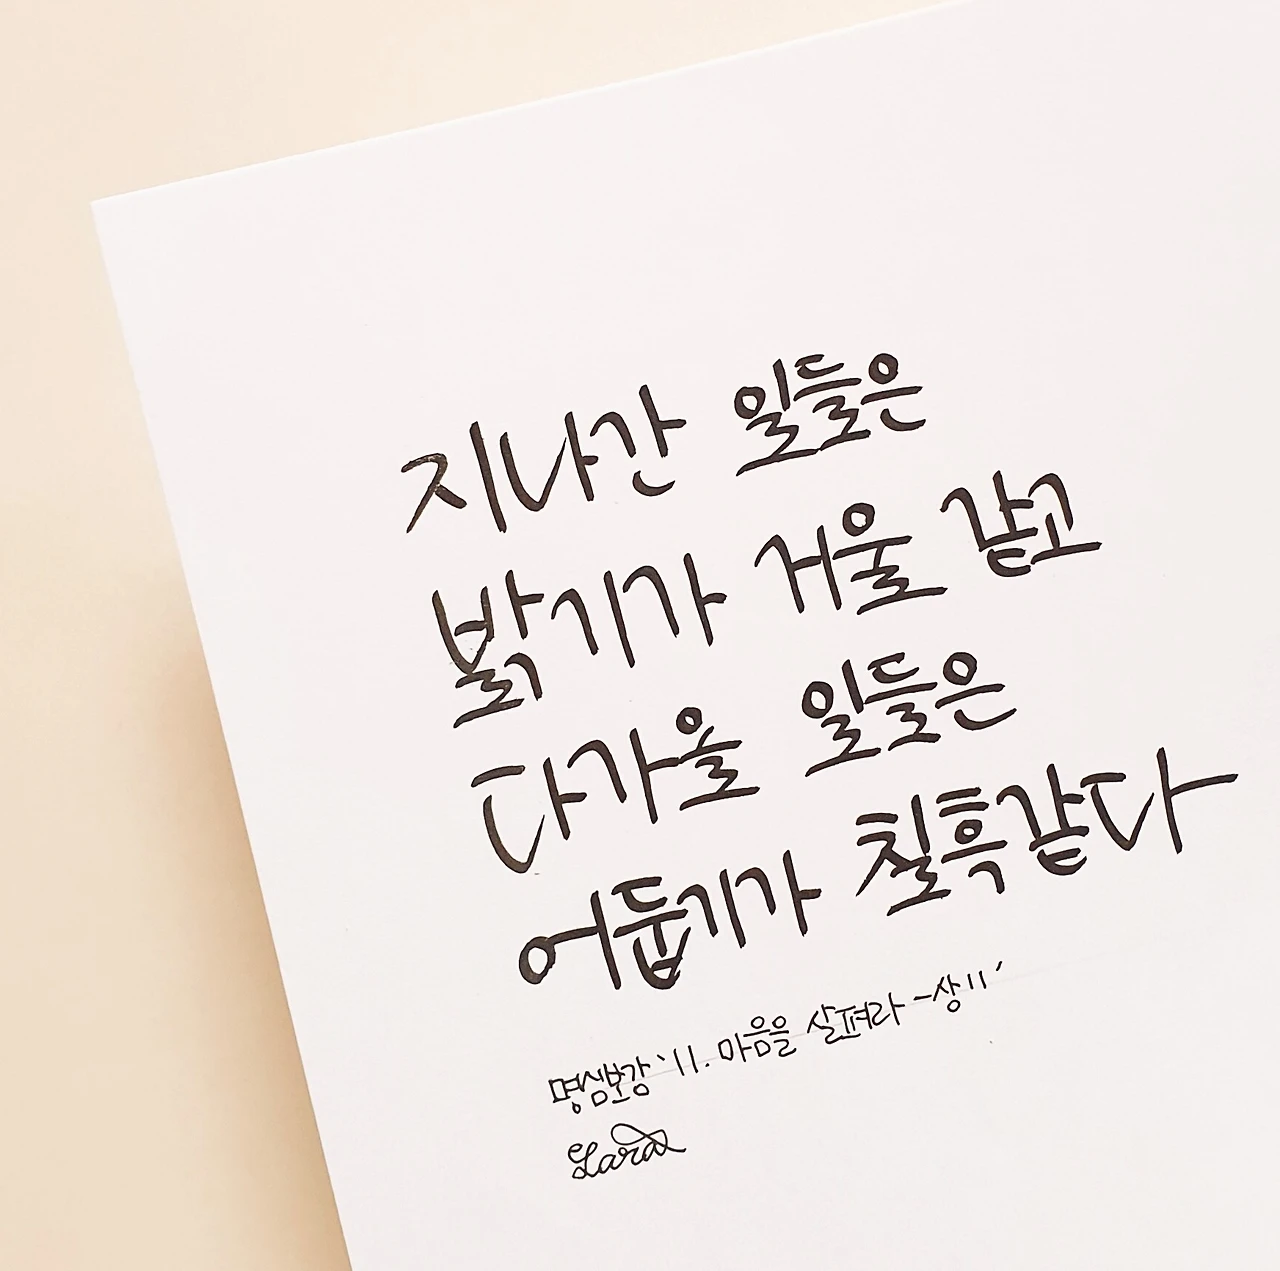 지나간 일들은
밝기가 거울 같고
다가올 일들은
어둡기가 칠흑같다
명심보감 '11. 마음을 살펴라 -상11'
Lara